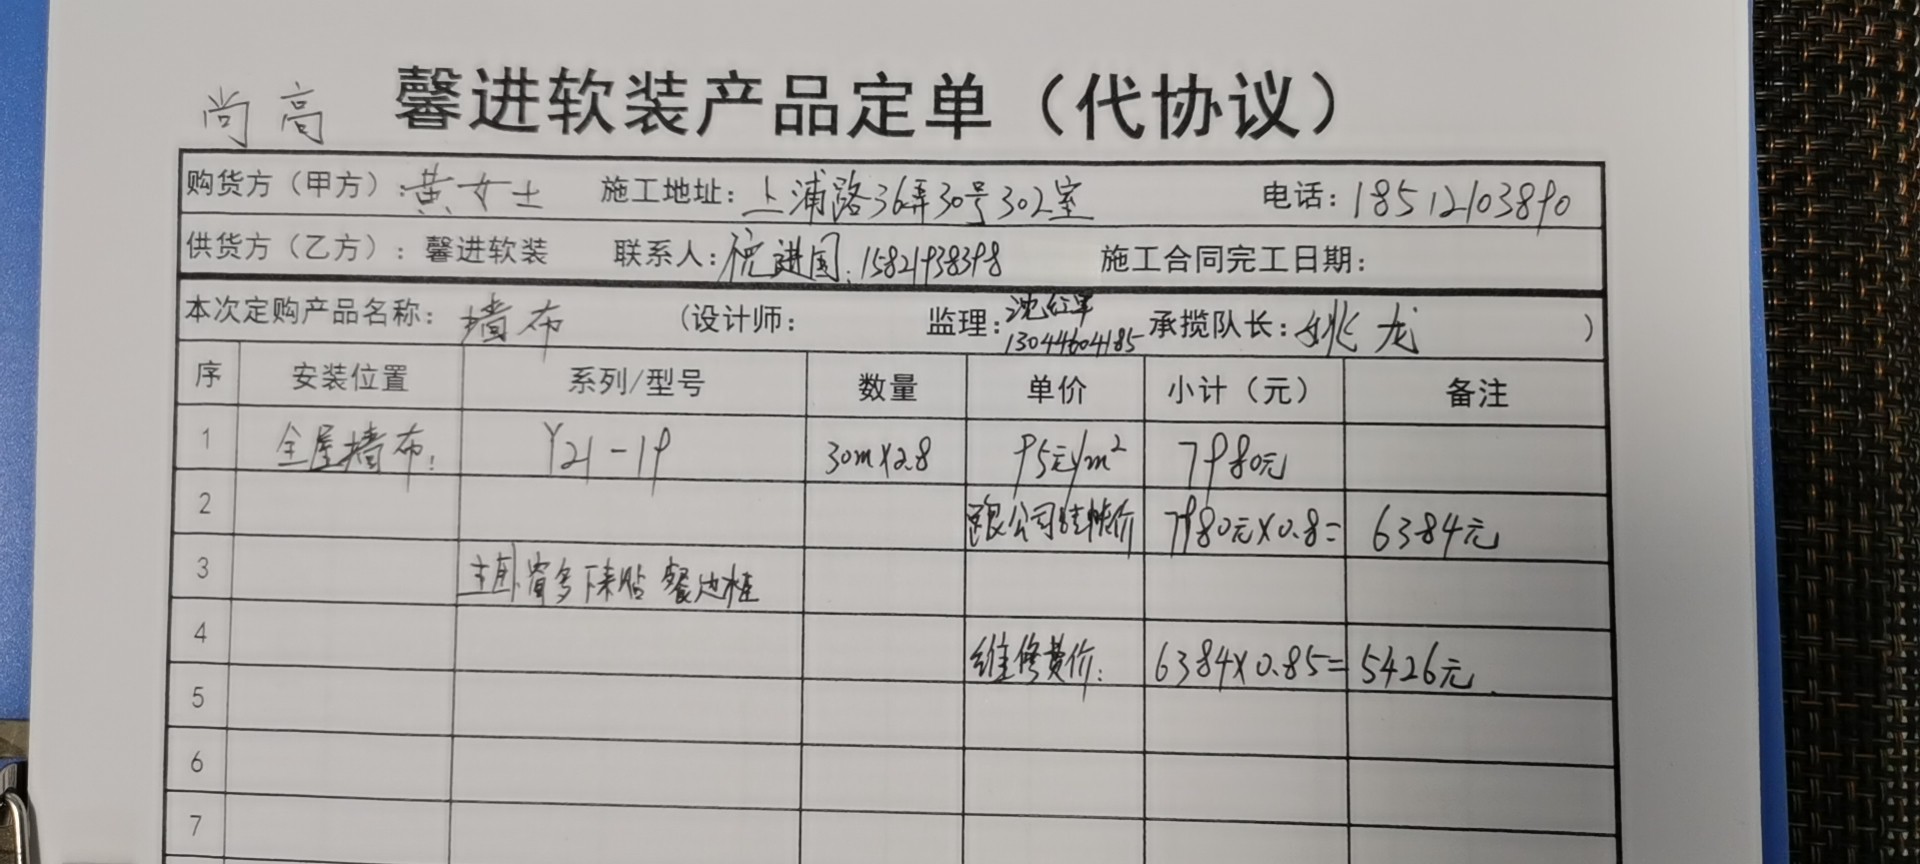 尚高 馨进软装产品定单（代协议）
购货方（甲方）：黄女士 施工地址：上浦路36弄30号302室 电话：18512103890
供货方（乙方）：馨进软装 联系人：倪进国. 15821938398 施工合同完工日期：
本次定购产品名称：墙布 （设计师： 监理：沈红军 13044604185 承揽队长：姚龙 ）
序 安装位置 系列/型号 数量 单价 小计（元） 备注
1 全屋墙布： Y21-19 30m×2.8 95元/m² 7980元
2 公司 价 7980元×0.8= 6384元
3 主卧窗 下 贴 餐边柜
4 维修费价： 6384×0.85= 5426元.
5
6
7